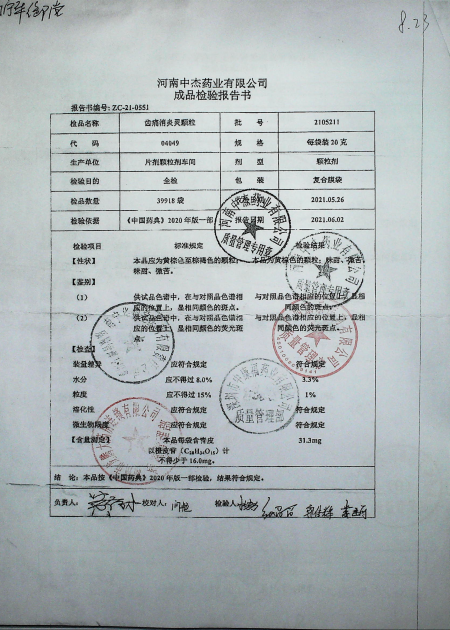 8.23
河南中杰药业有限公司
成品检验报告书
报告书编号: ZC-21-0551
检品名称 齿痛消炎灵颗粒 批 号 2105211
代 码 04049 规 格 每袋装20克
生产单位 片剂颗粒剂车间 剂 型 颗粒剂
检验目的 全检 包 装 复合膜袋
检品数量 39918 袋 2021.05.26
检验依据 《中国药典》2020年版一部 报告日期 2021.06.02
检验项目 标准规定 检验结果
【性状】 本品应为黄棕色至棕褐色的颗粒; 本品为黄棕色的颗粒; 味甜、微苦。
味甜、微苦。
【鉴别】
(1) 供试品色谱中, 在与对照品色谱相 与对照品色谱相应的位置上, 显相
应的位置上, 显相同颜色的斑点。 同颜色的斑点。
(2) 供试品色谱中, 在与对照品色谱相 与对照品色谱相应的位置上, 显相
应的位置上, 显相同颜色的荧光斑 同颜色的荧光斑点。
点。
【检查】
装量差异 应符合规定 符合规定
水分 应不得过 8.0% 3.3%
粒度 应不得过 15% 1%
溶化性 应符合规定 符合规定
微生物限度 应符合规定 符合规定
【含量测定】 本品每袋含青皮 31.3mg
以橙皮苷 (C₂₈H₃₄O₁₅) 计
不得少于 16.0mg。
结 论: 本品按《中国药典》2020年版一部检验, 结果符合规定。
负责人: 校对人: 检验人:
质量管理专用章
质量管理部